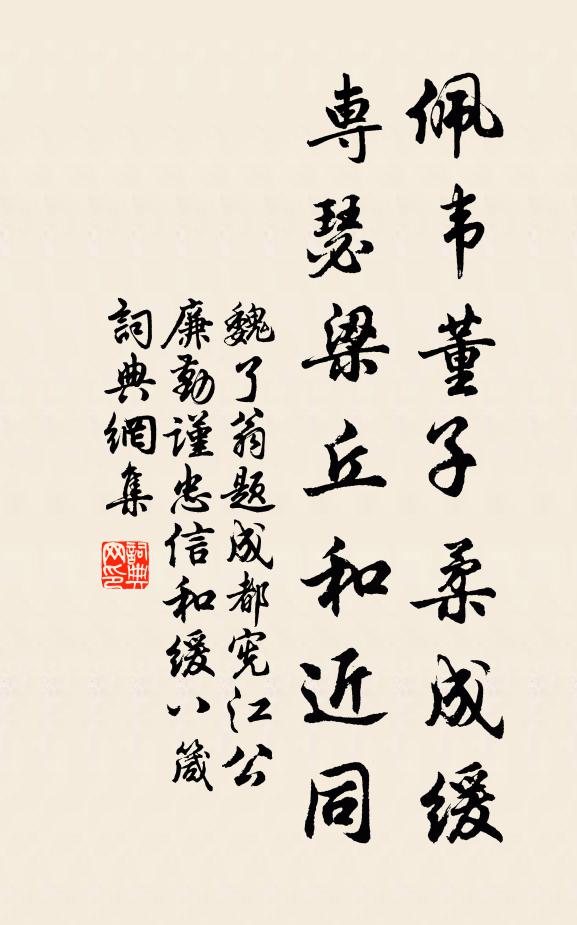 佩韦董子柔成缓
専瑟梁丘和近同
魏了翁题成都宪江公
廉勤谨忠信和缓八箴
詞典網集
詞典网印